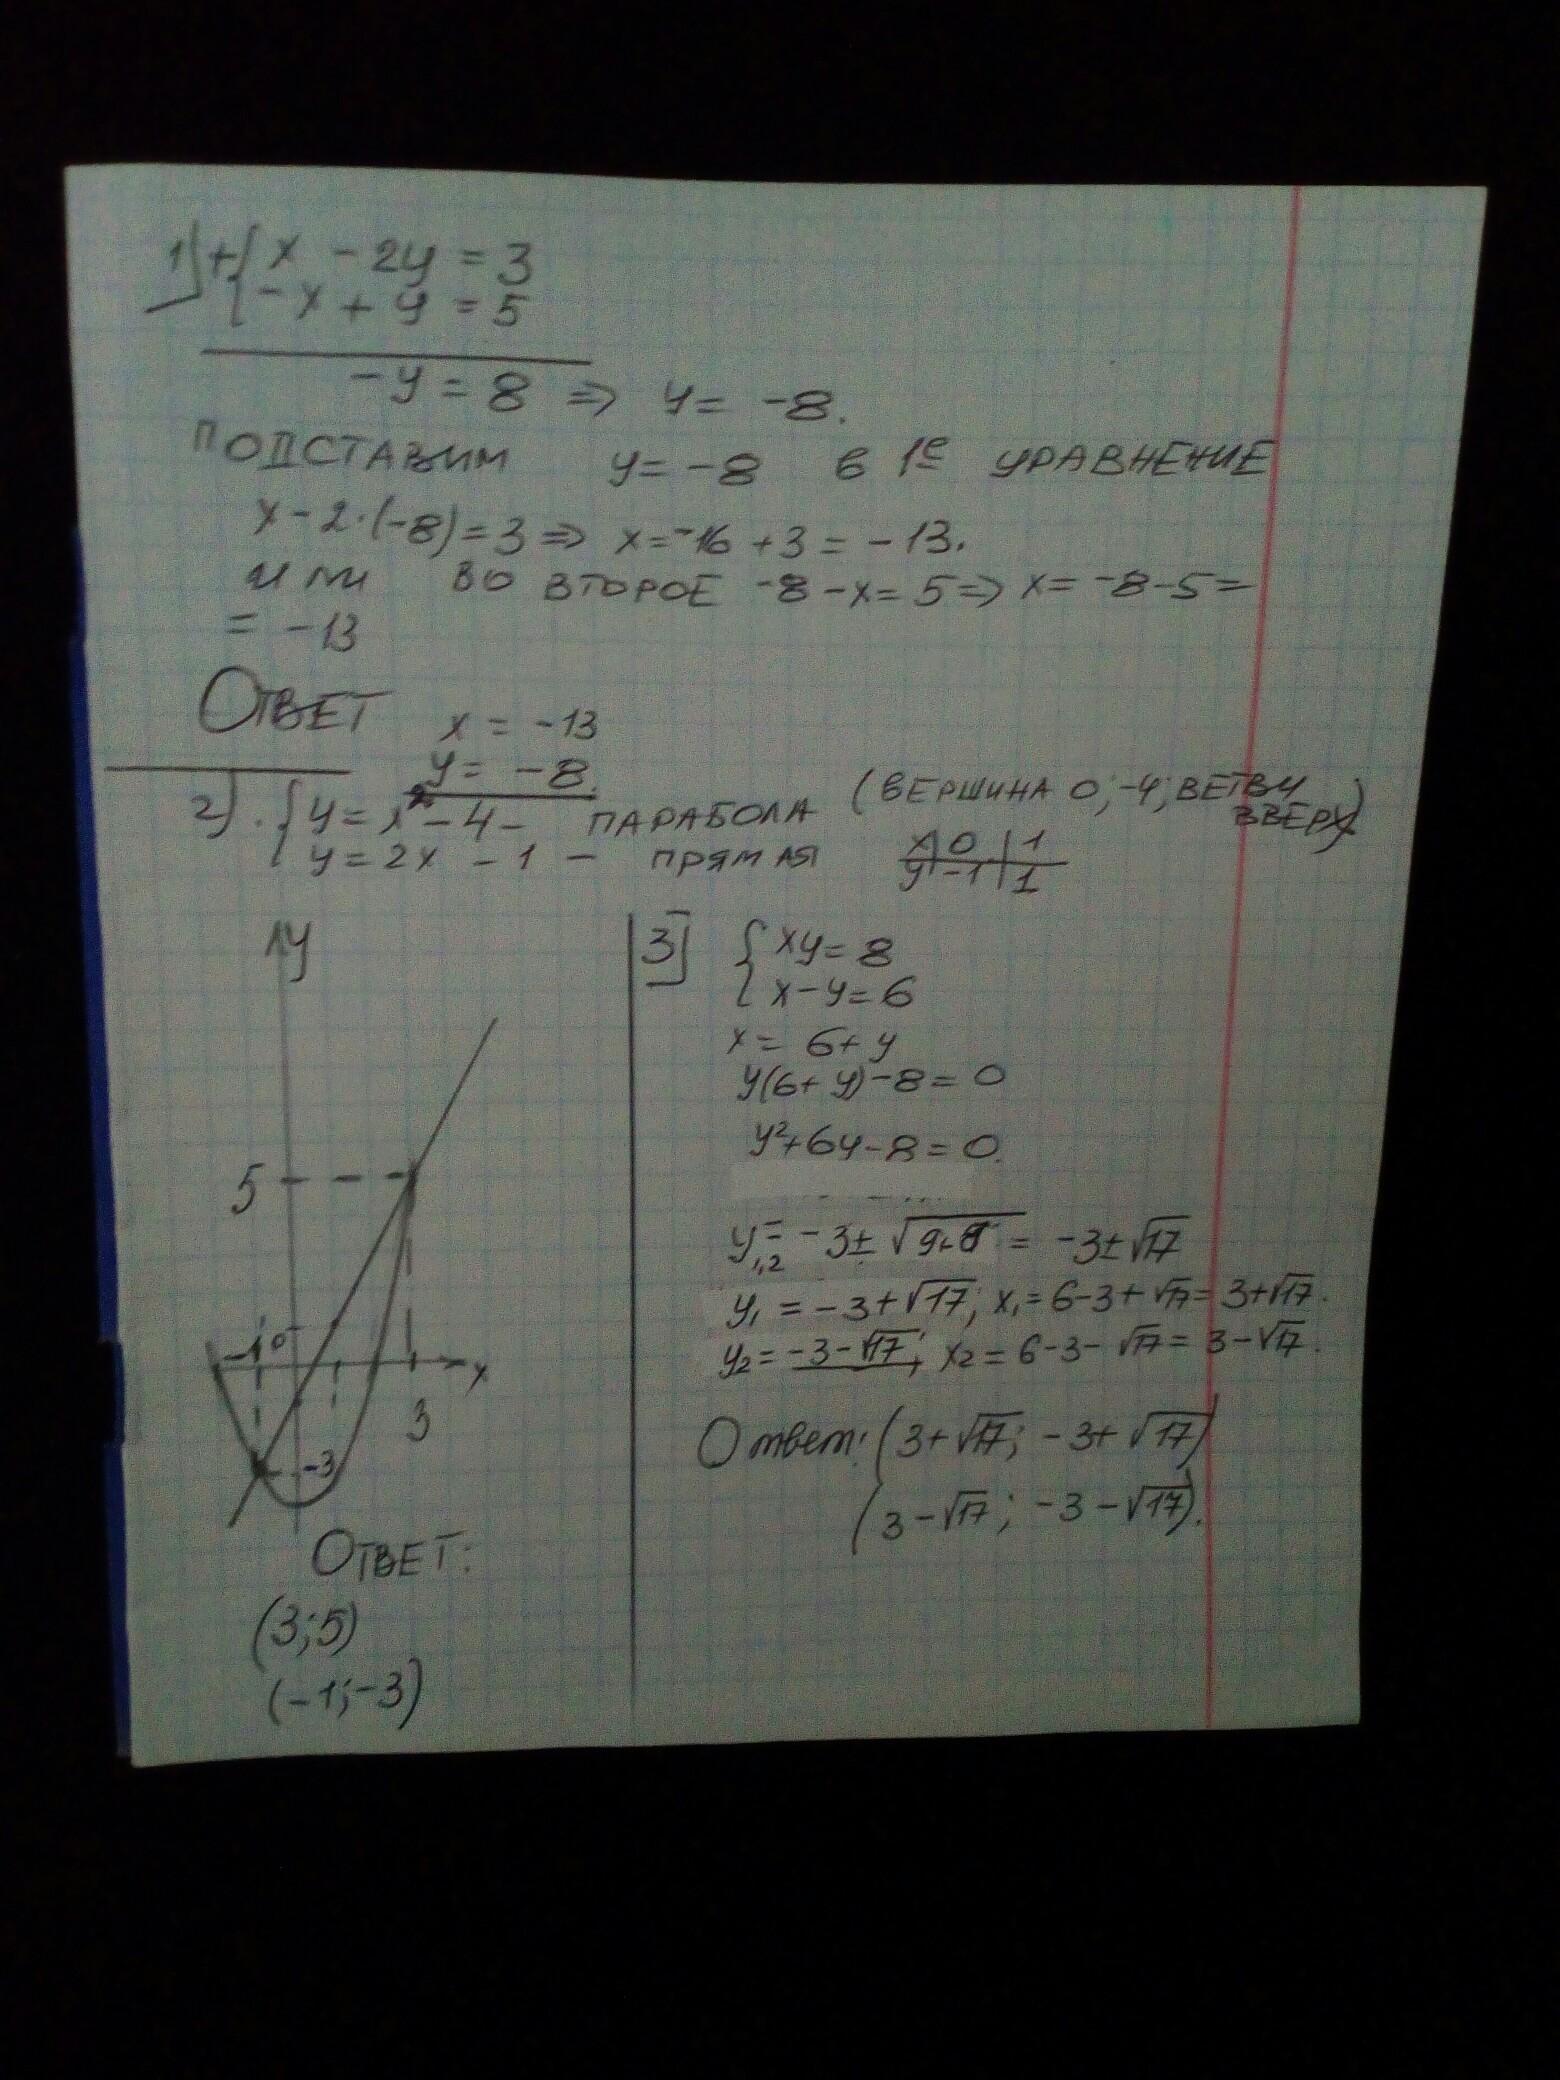 1) + { x - 2y = 3
{ -x + y = 5
-y = 8 => y = -8.
ПОДСТАВИМ y = -8 в 1е УРАВНЕНИЕ
x - 2·(-8) = 3 => x = -16 + 3 = -13.
или ВО ВТОРОЕ -8 - x = 5 => x = -8 - 5 =
= -13
ОТВЕТ x = -13
y = -8.
2). { y = x² - 4 - ПАРАБОЛА (ВЕРШИНА 0; -4; ВЕТВИ ВВЕРХ)
{ y = 2x - 1 - ПРЯМАЯ
x | 0 | 1
y | -1 | 1
y
5
-1 0
x
3
-3
ОТВЕТ:
(3; 5)
(-1; -3)
3) { xy = 8
{ x - y = 6
x = 6 + y
y(6 + y) - 8 = 0
y² + 6y - 8 = 0.
y1,2 = -3 ± √9+8 = -3 ± √17
y1 = -3 + √17; x1 = 6 - 3 + √17 = 3 + √17.
y2 = -3 - √17; x2 = 6 - 3 - √17 = 3 - √17.
Ответ: (3 + √17; -3 + √17)
(3 - √17; -3 - √17).